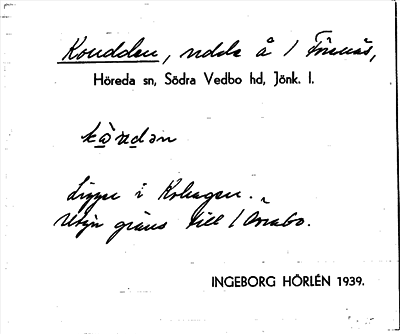 Koudden, udde å 1 Törnäs,
Höreda sn, Södra Vedbo hd, Jönk. l.
Ligger i Kohagen.
Utgör gräns till 1 Arabo.
INGEBORG HÖRLÉN 1939.